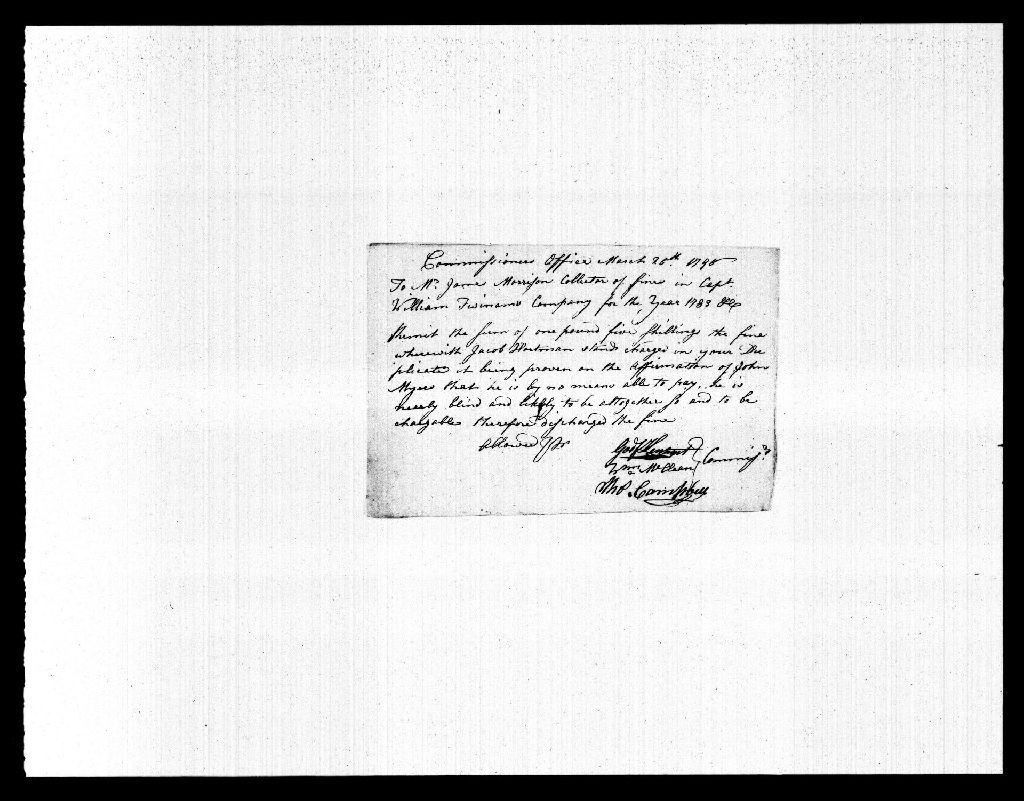 Commissioners Office March 20th 1790
To Mr. James Morrison Collector of fines in Capt.
William Twinams Company for the Year 1783 &c
Remit the sum of one pound five shillings the fine
wherewith Jacob stands charged in your Du
plicate it being proven on the affirmation of John
Myers that he is by no means able to pay. he is
nearly blind and likely to be altogether so and to be
chargable therefore discharged the fine
allowed
Wm. McClean Commiss.rs
Tho.s Campbell